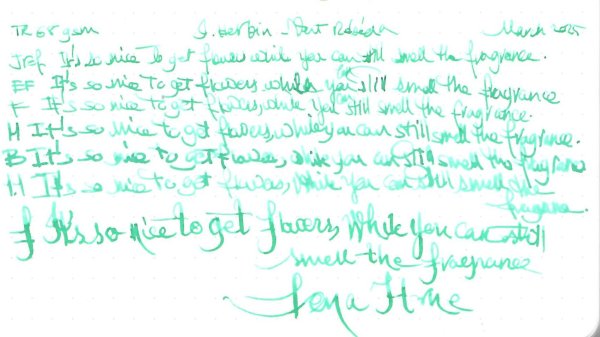 TR 68 gsm J. Herbin - Vert Réséda March 2025
JEF It's so nice to get flowers while you can still smell the fragrance.
EF It's so nice to get flowers, while you can still smell the fragrance
F It's so nice to get flowers, while you can still smell the fragrance.
M It's so nice to get flowers, while you can still smell the fragrance.
B It's so nice to get flowers, while you can still smell the fragrance
It's so nice to get flowers, while you can still smell the
fragrance.
It's so nice to get flowers, while you can still
smell the fragrance
Lena Horne